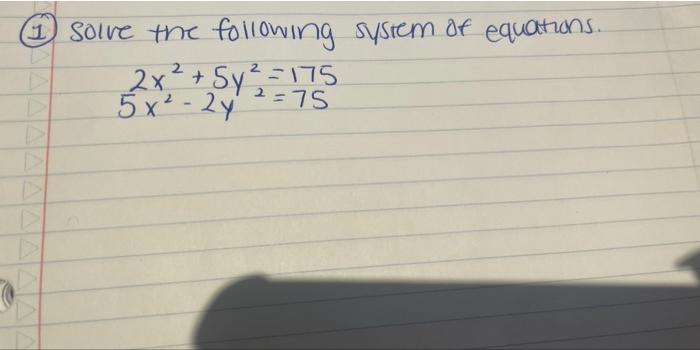 ① Solve the following system of equations.
2x² + 5y² = 175
5x² - 2y² = 75